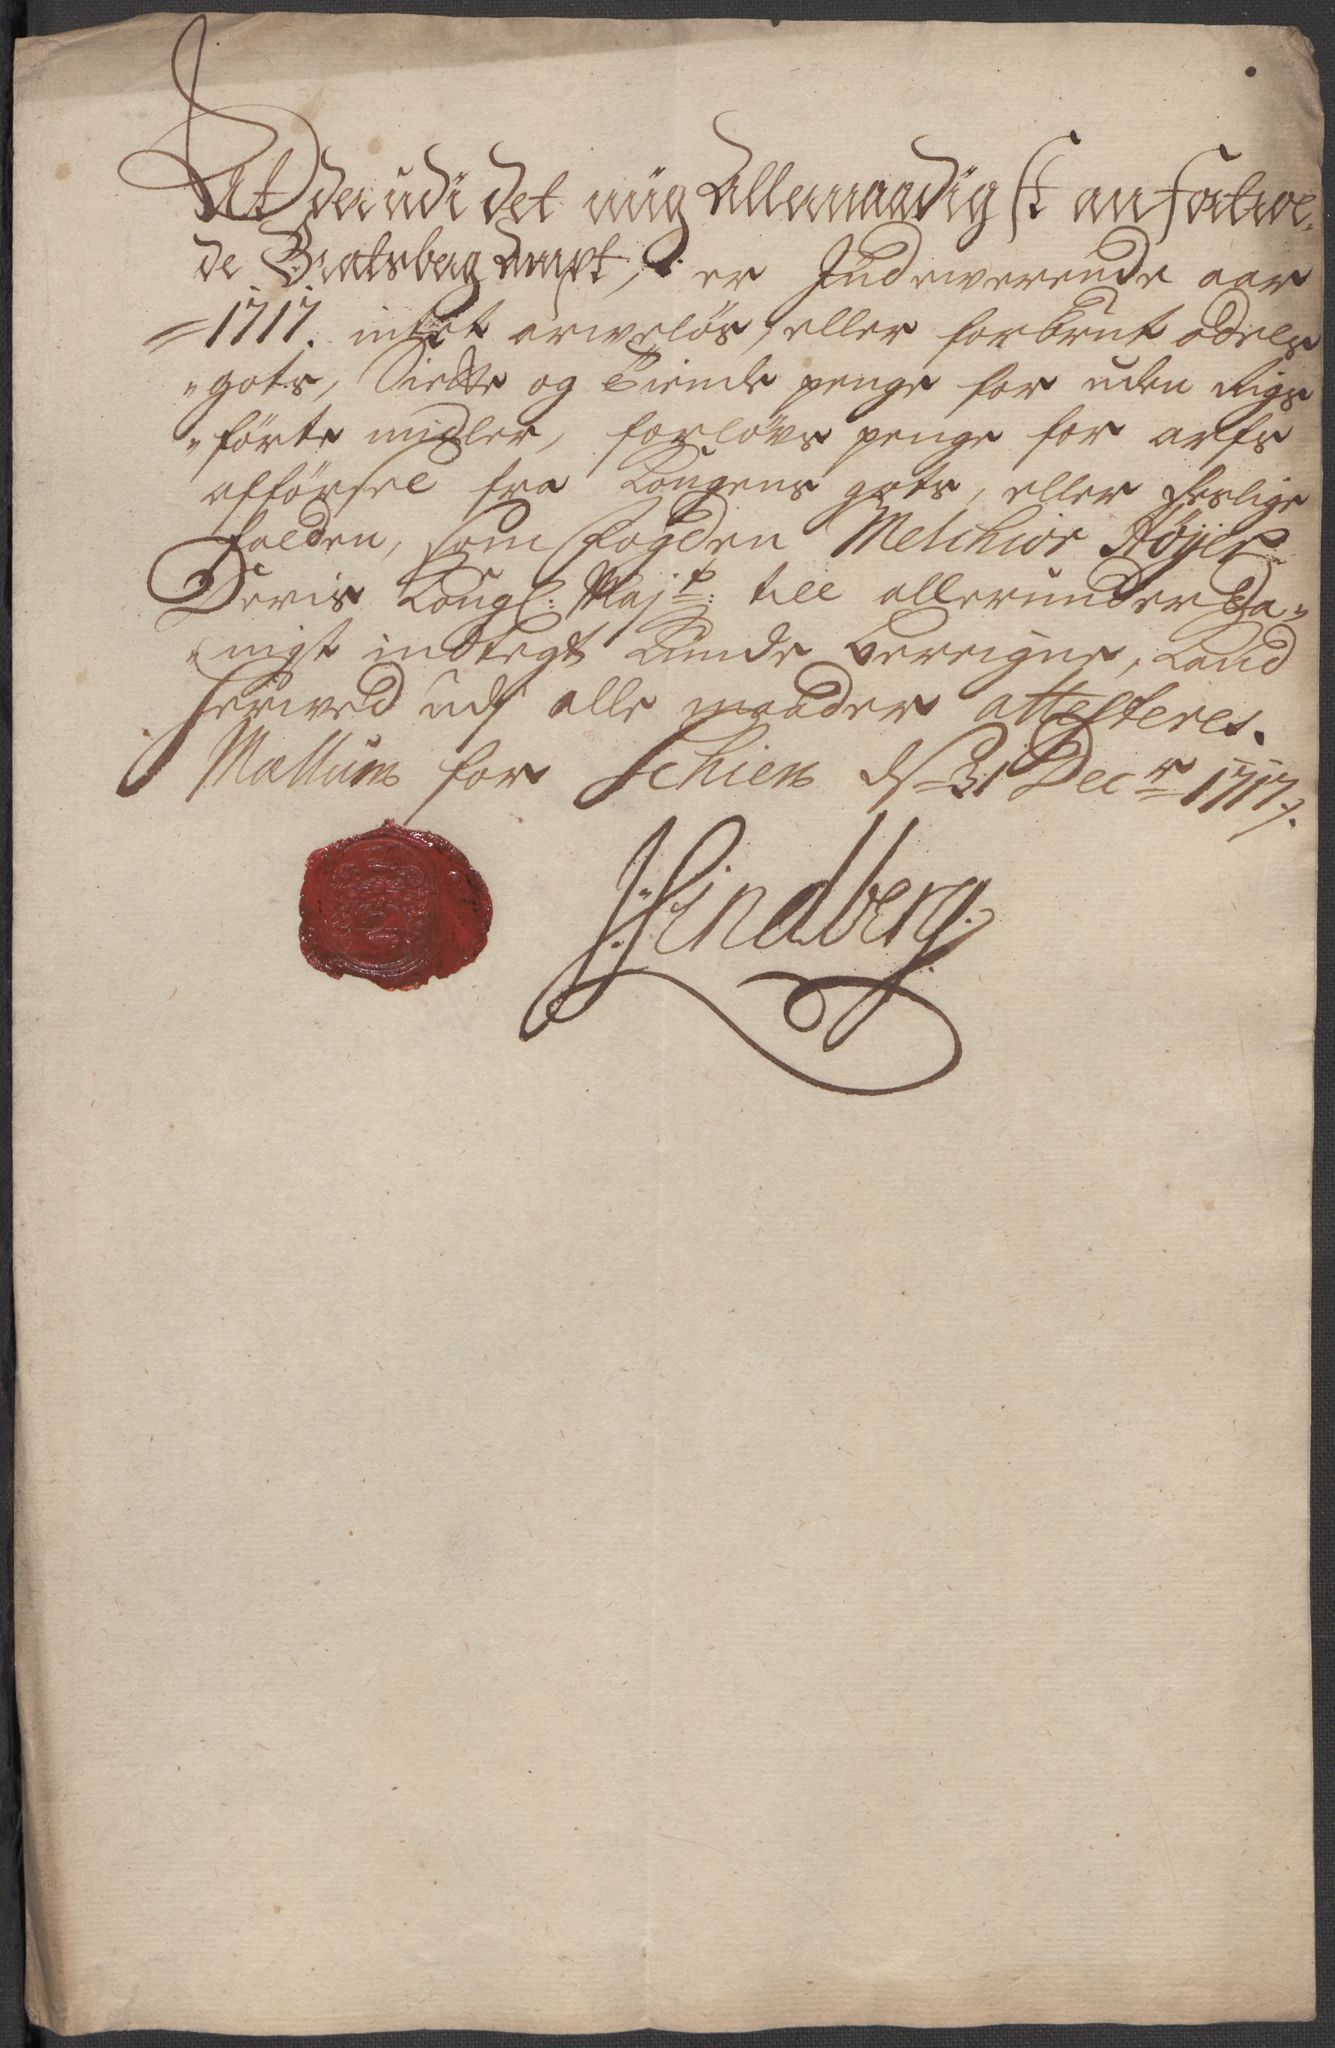 At der udi det mig Allernaadigst anfortroe,
de Bratsberg Ampt, er Indeværende aar
1717. intet arveløs, eller forbrut odels
gots, Siette og Tiende penge for uden Rigs
førte midler, forlovs penge for arfs
afførsel fra Kongens gots, eller deslige
falden, som fogden Melchior Høyer
Deris Kongl: Majt: till allerunderda,,
nigst indtegt kunde bereigne,
herved udj alle maader attesteres.
Mællum for Schien ds 31 Decr 1717.
J: Hindberg.